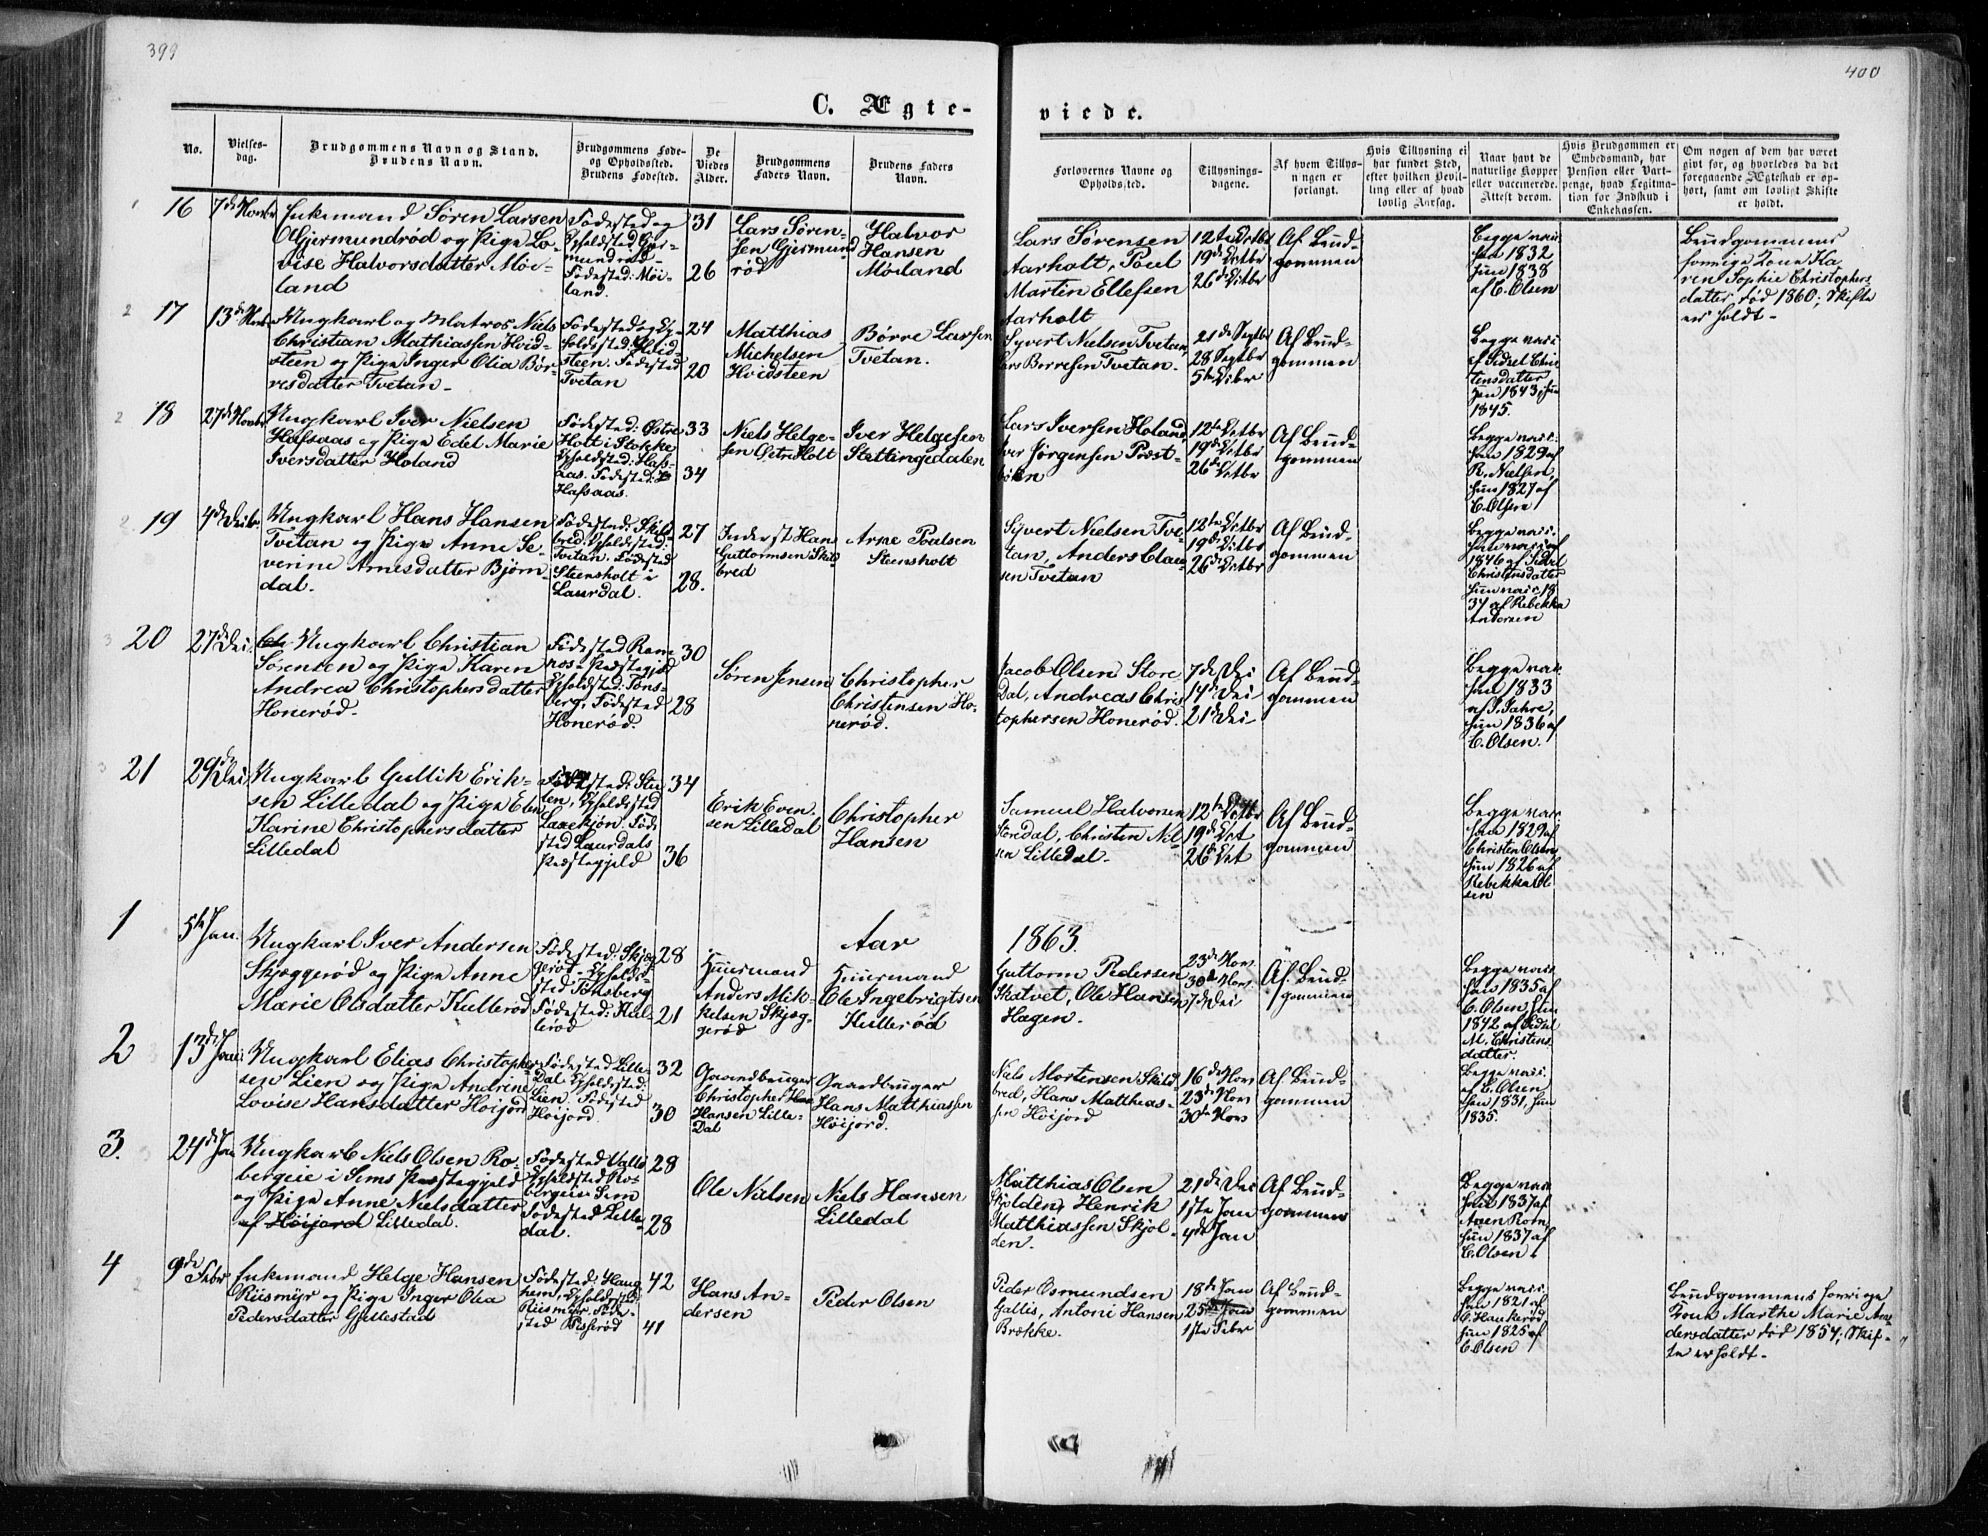 399
400
C. Ægte-
viede.
No.
Vielses-
dag.
Brudgommens Navn og Stand.
Brudens Navn.
Brudgommens Føde-
og Opholdssted.
Brudens Fødested.
De
Viedes
Alder.
Brudgommens
Faders Navn.
Brudens Faders
Navn.
Forlovernes Navne og
Opholdssted.
Tillysnings-
dagene.
Af hvem Tillys-
ningen er
forlangt.
Hvis Tillysning ei
har fundet Sted,
efter hvilken Bevil-
ling eller af hvad
lovlig Aarsag.
Naar havt de
naturlige Kopper
eller vaccinerede.
Attest derom.
Hvis Brudgommen er
Embedsmand, har
Pension eller Vart-
penge, hvad Legitima-
tion for Indskud i
Enkekassen.
Om nogen af dem har været
givt for, og hvorledes da det
foregaaende Ægteskab er op-
hørt, samt om lovligt Skifte
er holdt.
16
7de Novbr
Enkemand Søren Larsen
Gjermundrød og Pige Lo-
vise Halvorsdatter Møi-
land
Fødested og
Opholdsted Gjer-
mundrød
Fødested: Møi-
land.
31
26
Lars Søren-
sen Gjermund
rød
Halvor
Hansen
Møiland
Lars Sørensen
Aarholt, Poul
Martin Ellefsen
Aarholt
12te Octbr
19de Octbr
26de Octbr
Af Brud-
gommen
Begge vacc:
han 1832
hun 1838
af C. Olsen
Brudgommens
forrige Kone Ka-
ren Sophie Christophers-
datter død 1860; Skifte
er holdt-
17
13de Novbr
Ungkarl og Matros Niels
Christian Mathiassen Hvid-
steen og Pige Inger Olia Bør-
resdatter Tvetan-
Fødested og Op-
holdsted: Hvid-
steen. Fødested
Tvetan
24
20
Matthias
Michelsen
Hvidsteen
Børre Larsen
Tvetan.
Syvert Nielsen Tvetan,
Lars Borresen Tvetan.
21de Septbr
28 Septbr
5te Octbr
Af Brud-
gommen
Begge vacc:
af Sidsel Chri-
stensdatter
han 1843, hun
1845.
18
27de Novbr
Ungkarl Iver Nielsen
Hafsaas og Pige Edel Marie
Iversdatter Holand
Fødested: Østre
Holt i Stokke
Opholdsted: Hafs-
aas. Fødested:
Hafsaas.
33
34
Niels Helge-
sen Østre Holt
Iver Helgesen
Stettingedalen
Lars Iversen Holand,
Iver Jørgensen Præst-
bøen
12te Octbr
19de Octbr
26de Octbr
Af Brud-
gommen
Begge vacc:
han 1829 af
R. Nielsen,
hun 1827 af
C. Olsen
19
4de Decbr.
Ungkarl Hans Hansen
Tvetan og Pige Anne Se-
verine Arnesdatter Bjørn-
dal.
Fødested: Skild-
bred. Opholdsted:
Tvetan. Fødested
Steensholt i
Laurdal.
27
28.
Inderst Han
Guttormsen Skil-
bred
Arne Poulsen
Steensholt
Syvert Nielsen Tve-
tan, Anders Clau-
sen Tvetan
12te Octbr
19de Octbr
26de Octbr
Af Brud-
gommen
Begge vacc:
han vacc: af
1846 af Sidsel
Christensdatter
hun vacc: 18
37 af Rebekka
Andersen
20
27de Dec:
Ungkarl Christian
Sørensen og Pige Karen
Andrea Christophersdatter
Honerød.
Fødested Ram-
nes Præstegjeld
Opholdsted: Tøns-
berg, Fødested
Honerød.
30
28
Søren Jensen
Christopher
Christensen Ho-
nerød.
Jacob Olsen Store
Dal, Andreas Chris-
tophersen Honerød.
7de Dec
14de Dec
21de Dec
Af Brud-
gommen
Begge vacc:
han 1833
af S. Sahre,
hun 1836 af
C. Olsen.
21
29de Dec:
Ungkarl Gullik Erik-
sen Lilledal og Pige Elen
Karine Christophersdatter
Lilledal
Fødested: Stu-
len, Opholdsted
Laxekjøn. Føde-
sted Laurdals
Præstegjeld
34
36
Erik Even-
sen Lilledal
Christopher
Hansen
Samuel Halvorsen
Storedal, Christen Niel-
sen Lilledal-
12te Octbr
19de Oct
26de Oct
Af Brud-
gommen
Begge vacc:
han 1829 af
Christen Olsen,
hun 1826 af
Rebekka Ol-
sen
Aar
1863.
1
5te Jan.
Ungkarl Iver Andersen
Skjæggerød og Pige Anne
Marie Olsdatter Kullerød
Fødested: Skjæg-
gerød. Opholds-
sted Tønsberg
Fødested: Kul-
lerød
28
21
Huusmand
Anders Mik-
kelsen Skjæg-
gerød
Huusmand
Ole Ingebrigtsen
Kullerød
Guttorm Pedersen
Skatvet, Ole Hansen
Hagen.
23de Nov
30de Nov
7de Dec
Af Brud-
gommen
Begge vacc:
han 1835 af
C. Olsen, hun
1842 af Sidsel
M. Christens-
datter.
2
13de Jan:
Ungkarl Elias Christopher-
sen Lien og Pige Andrine
Lovise Hansdatter Høijord
Fødested Lille-
Dal. Opholdsted:
Lien. Fødested
Høijord.
32
30
Gaardbruger
Christopher
Hansen Lille-
Dal
Gaardbruger
Hans Matthiassen
Høijord.
Niels Mortensen Skild-
bred, Hans Matthias-
sen Høijord
16de Nov
23de Nov
30te Nov
Af Brud-
gommen
Begge vacc:
af C. Olsen
han 1831, hun
1835.
3.
24de Jan
Ungkarl Niels Olsen Ro-
bergeie i Sems Præstegjeld
og Pige Anne Nielsdatter
af Høijord Lilledal.
Fødested Valle
Opholdsted Ro-
bergeie Sem
Fødested Lille-
dal.
28
28
Ole Nielsen
Niels Hansen
Lilledal
Matthias Olsen
Skjolden, Henrik
Matthiassen Skjol-
den.
21de Dec
1ste Jan
4de Jan
Af Brud-
gommen
Begge vacc:
han 1837 af
Anen Rom,
hun 1837 af
C. Olsen
4
9de Febr
Enkemand Helge Hansen
Riismyr og Pige Inger Olea
Pedersdatter Gjellestad
Fødested: Haug-
hem, Opholdsted
Riismyr, Føde-
sted Pisserød
42
41
Hans An-
dersen
Peder Olsen
Peder Osmundsen
Gallis, Antoni Hansen
Brække.
18de Jan
25de Jan
1ste Febr
Af Brud-
gommen
Begge vacc:
han 1821 af
C. Haukerød
hun 1825 af
C. Olsen
Brudgommens forrige
Kone Marthe Marie An-
dersdatter død 1857; Skif-
te er holdt-